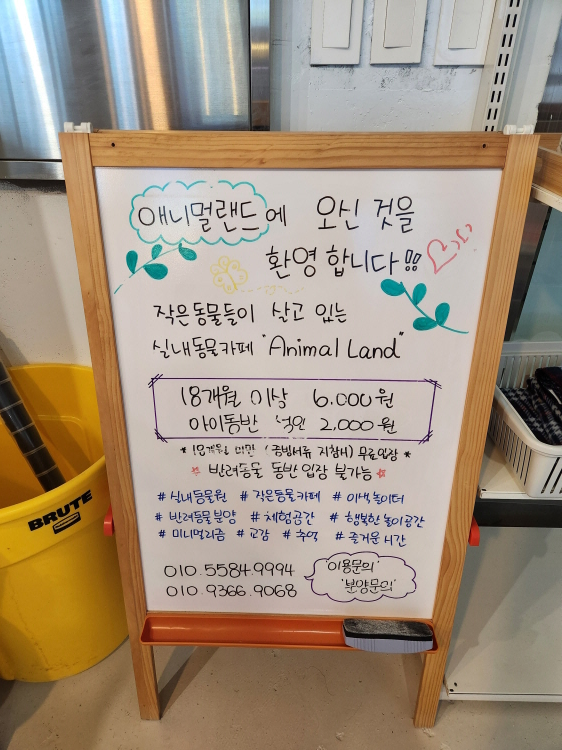 애니멀랜드에 오신 것을
환영합니다!!
작은동물들이 살고 있는
실내동물카페 "Animal Land"
18개월 이상 6,000원
아이동반 성인 2,000원
* 18개월 미만 (증빙서류 지참시) 무료입장 *
* 반려동물 동반 입장 불가능 *
# 실내동물원 # 작은동물카페 # 이색놀이터
# 반려동물분양 # 체험공간 # 행복한 놀이공간
# 미니멀리즘 # 교감 # # 즐거운 시간
010.5584.9994 '이용문의'
010.9366.9068 '분양문의'
BRUTE